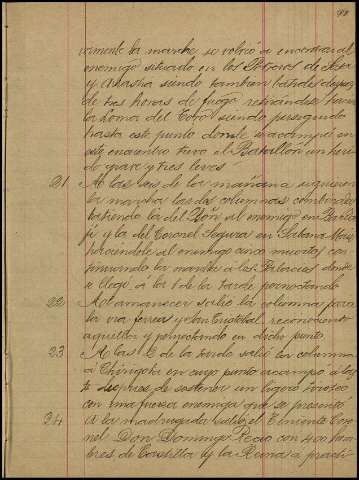 vamente la marcha se volvió á encontrar al
enemigo situado en los Potreros de
y siendo tambien batidos despues
de tres horas de fuego retirandose hacia
la Loma del Cobo siendo perseguido
hasta este punto donde se acampó en
este encuentro tuvo el Batallón un heri-
do grave y tres leves.
21 A las seis de la mañana siguieron
la marcha las dos columnas combinadas
batiendo la del Bón al enemigo en
y la del Coronel Segura en Sabana
haciendole al enemigo cinco muertos con
tinuando la marcha á los Palacios donde
se llegó á la 1 de la tarde pernoctando
22 Al amanecer salió la columna para
la via ferrea y San Cristobal reconociendo
aquella y pernoctando en dicho punto.
23 A las 2 de la tarde salió la columna
a en cuyo punto acampó á las
despues de sostener un ligero tiroteo
con una fuerza enemiga que se presentó
24 A la madrugada salió el Teniente Coro-
nel Don Domingo Recio con 400 hom
bres de Castilla y la Reina á practi